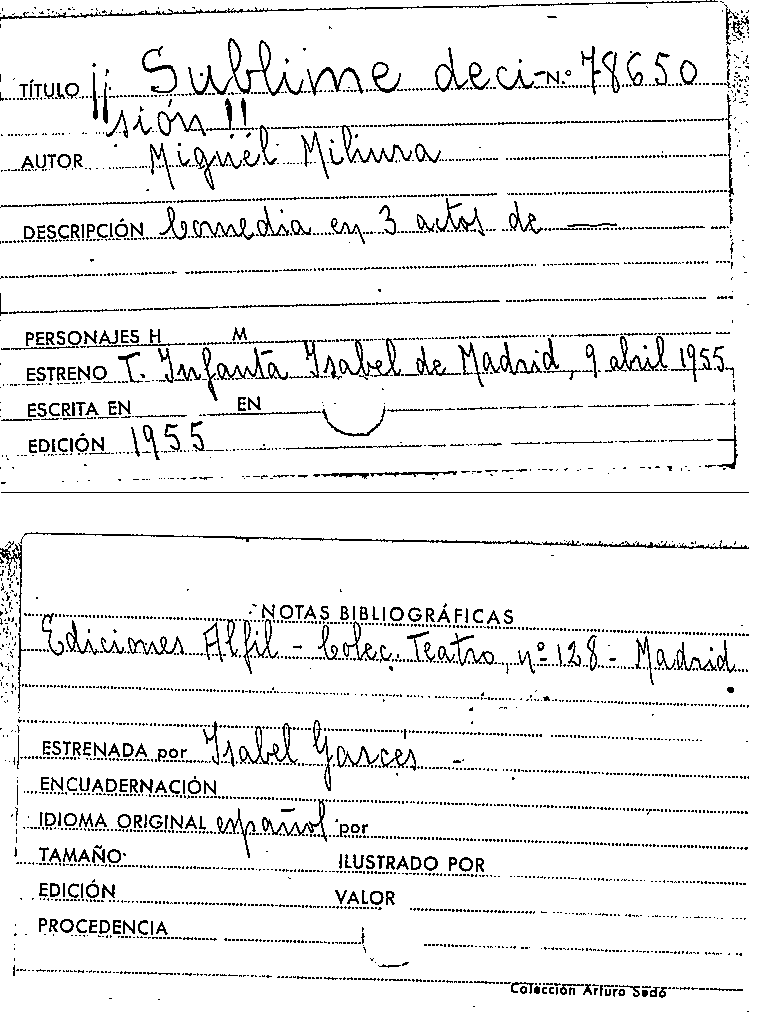 TÍTULO ¡¡ Sublime deci- N.º 78650
sión !!
AUTOR Miguel Mihura
DESCRIPCIÓN Comedia en 3 actos de —
PERSONAJES H M
ESTRENO T. Infanta Isabel de Madrid, 9 abril 1955
ESCRITA EN EN
EDICIÓN 1955
NOTAS BIBLIOGRÁFICAS
Ediciones Alfil - Colec. Teatro, nº 128 - Madrid
ESTRENADA por Isabel Garcés -
ENCUADERNACIÓN
IDIOMA ORIGINAL español por
TAMAÑO ILUSTRADO POR
EDICIÓN VALOR
PROCEDENCIA
Colección Arturo Sedó